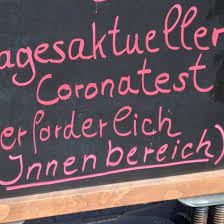 agesaktueller
Coronatest
erforderlich
Innenbereich)